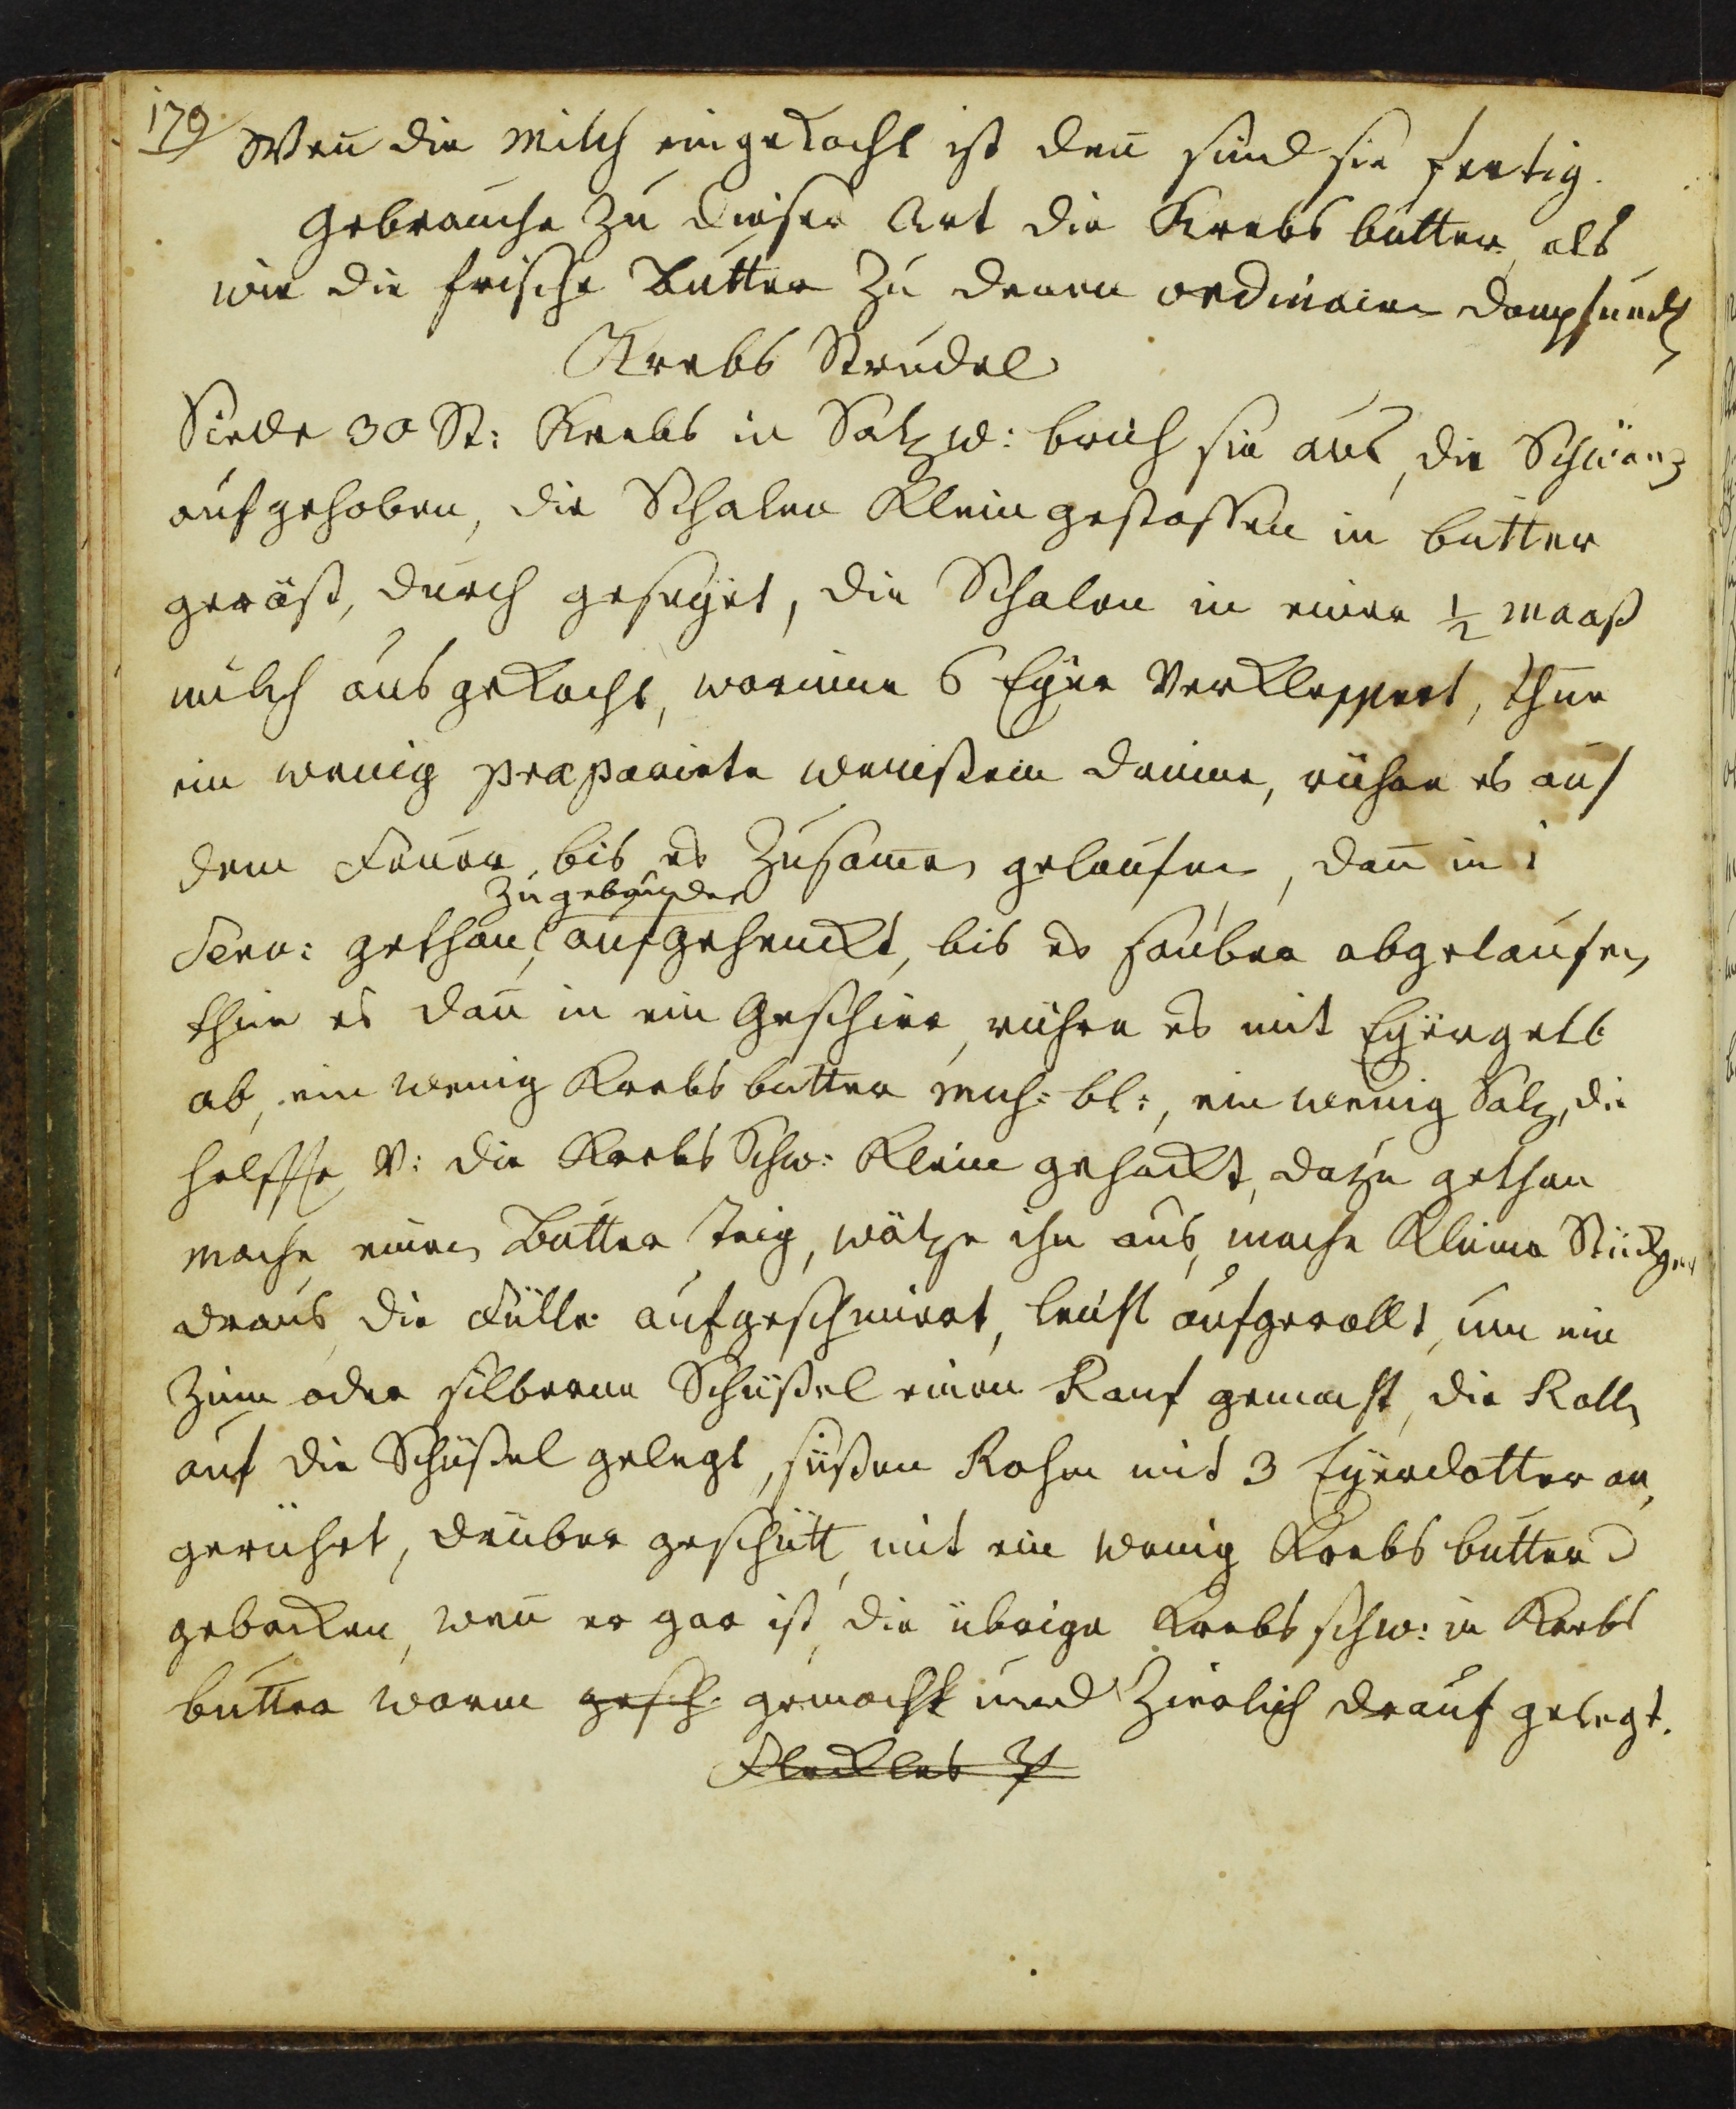 179
Weñ die Milch eingekocht ist deñ sind sie fertig.
Gebrauche zu dieser Art die Krebs butter, als
wie die frische Butter zu denen ordinairen Dampfnudl
Krebs Strudel
Siede 30 St: Krebs in Salz w: brich sie aus, die Schwänz
aufgehoben, die Schalen klein gestossen in butter
geröst, durch geseyet, die Schalen in einer ½ Maaß
milch ausgekocht, worinne 6 Eyer verkleppert, thue
ein wenig præparirte weinstein drinne, rühre es auf
dem Feuer, bis es zusam̃en gelaufen, dañ in 1
zugebunden
Serv: gethan, aufgehenckt, bis es sauber abgelaufen,
thue es dañ in ein Geschirr, rühre es mit Eyergelb
ab, ein wenig Krebsbutter Mus: bl:, ein wenig Salz, die
helffte v: die Krebs Schw: klein gehackt, dazu gethan
mache einen Butter Teig, wälze ihn aus, mache kleine Stückgen
draus, die Fülle aufgeschmiert, leicht aufgerollt, um ein
Zinn oder silberne Schüßel einen Ranf gemacht, die Rolln
auf die Schüßel gelegt, süßen Rohm mit 3 Eyerdotter an
gerührt, drüber geschütt, mit ein wenig Krebs butter
gebacken, weñ er gar ist, die übrige Krebs schw: in Krebs
butter warm gesch. gemacht und zierlich drauf gelegt.
Fleckles